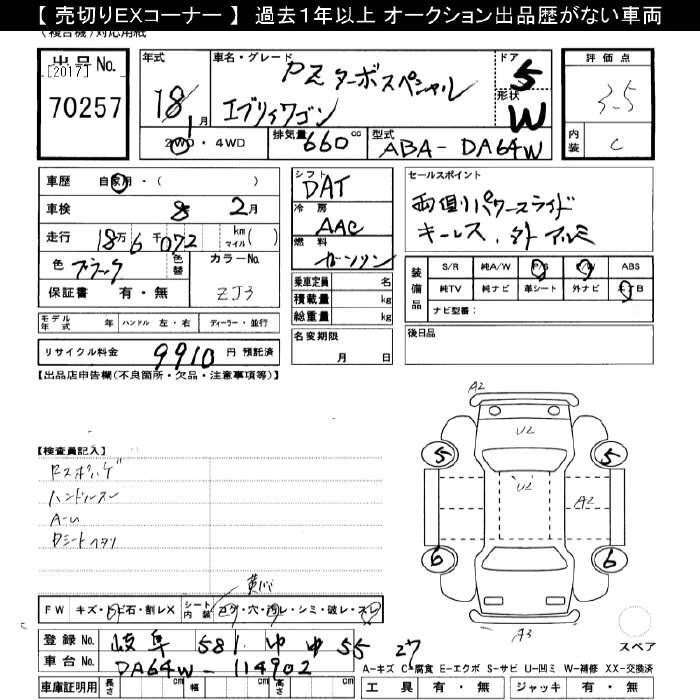 【 売切りEXコーナー 】 過去１年以上 オークション出品歴がない車両
(複合機)対応用紙
出品No.
[2017]
70257
年式
18年
1月
車名・グレード
PZターボスペシャル
エブリィワゴン
ドア
5
形状
W
評価点
3.5
内装
C
2WD・4WD
排気量 660 cc
型式 ABA-DA64W
車歴 自家用・( )
車検 8 2月
走行 18万6千072 km マイル( )
色 ブラック
色替
カラーNo.
ZJ3
保証書 有・無
シフト
DAT
冷房
AAC
燃料
ガソリン
乗車定員 名
積載量 kg
総重量 kg
セールスポイント
両側パワースライド
キーレス、外アルミ
装備品
S/R 純A/W P/S P/W ABS
純TV 純ナビ 革シート 外ナビ エアB
ナビ型番:
モデル年式 年 ハンドル 左・右 ディーラー・並行
名変期限
月 日
後日品
リサイクル料金 9910 円 預託済
【出品店申告欄(不良箇所・欠品・注意事項等)】
A2
U2
5 5
U2
A2
6 6
A3
スペア
【検査員記入】
ハンドルスレ
A-U
Dシートヘタリ
FW キズ・トビ石・割レX
シート内装 コゲ・穴・汚レ・シミ・破レ・スレ
登録No. 岐阜 581 ゆ ゆ 55 27
車台No. DA64W-114902
A-キズ C-腐食 E-エクボ S-サビ U-凹ミ W-補修 XX-交換済
車庫証明用 長さ cm 幅 cm 高さ cm
工具 有・無 ジャッキ 有・無